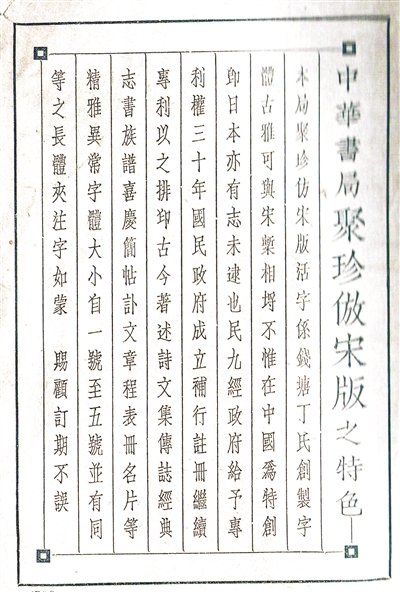 中華書局聚珍倣宋版之特色
本局聚珍仿宋版活字係錢塘丁氏創製字
體古雅可與宋槧相埒不惟在中國爲特創
卽日本亦有志未逮也民九經政府給予專
利權三十年國民政府成立補行註冊繼續
專利以之排印古今著述詩文集傳誌經典
志書族譜喜慶簡帖訃文章程表冊名片等
精雅異常字體大小自一號至五號並有同
等之長體夾注字如蒙　賜顧訂期不誤